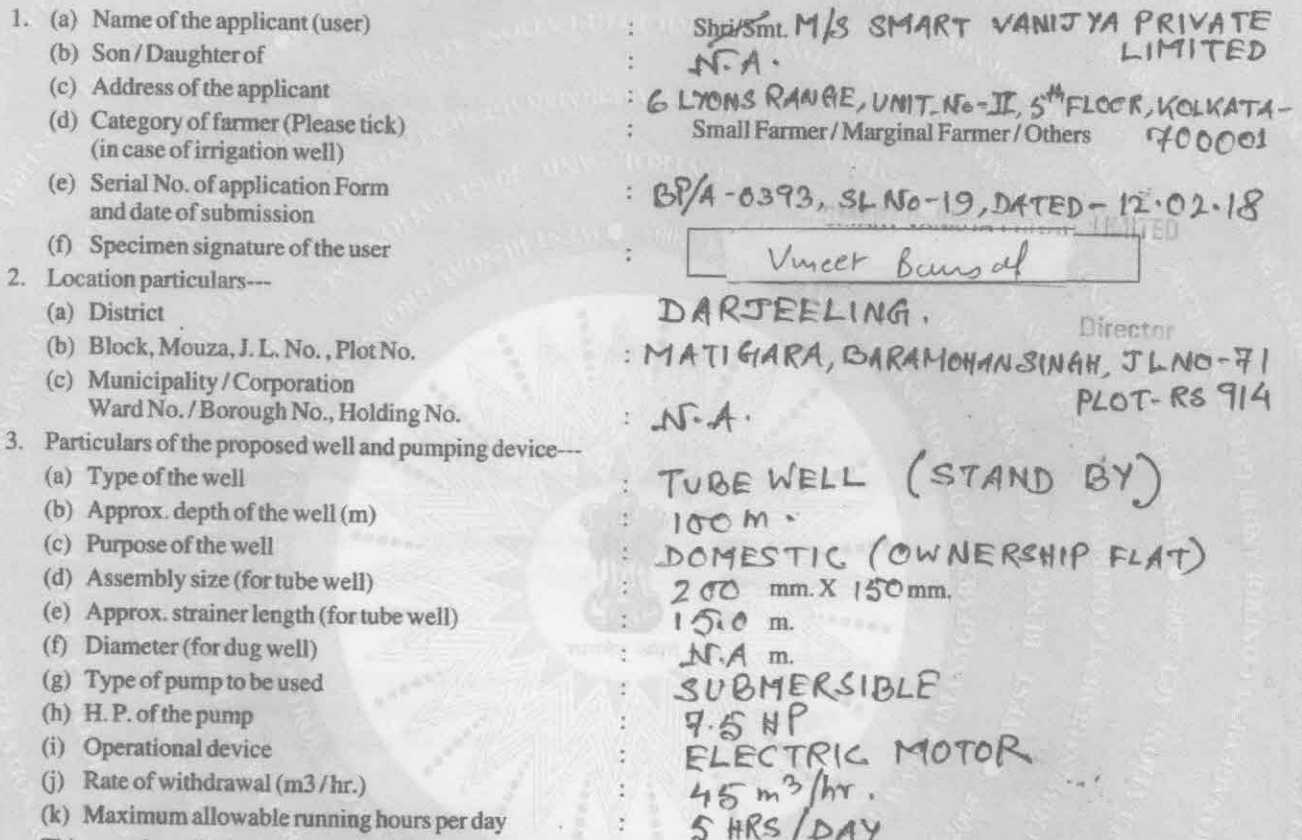 1. (a) Name of the applicant (user) : Shri/Smt. M/S SMART VANIJYA PRIVATE LIMITED
(b) Son / Daughter of : N.A.
(c) Address of the applicant : 6 LYONS RANGE, UNIT-No-II, 5th FLOOR, KOLKATA-700001
(d) Category of farmer (Please tick) : Small Farmer / Marginal Farmer / Others
(in case of irrigation well)
(e) Serial No. of application Form : BP/A-0393, SL No-19, DATED- 12.02.18
and date of submission
LIMITED
(f) Specimen signature of the user : Vineet Bansal
2. Location particulars---
(a) District DARJEELING.
Director
(b) Block, Mouza, J. L. No. , Plot No. : MATIGARA, BARAMOHANSINGH, JL NO-71
PLOT- RS 914
(c) Municipality / Corporation
Ward No. / Borough No., Holding No. : N.A.
3. Particulars of the proposed well and pumping device---
(a) Type of the well : TUBE WELL (STAND BY)
(b) Approx. depth of the well (m) : 100 m.
(c) Purpose of the well : DOMESTIC (OWNERSHIP FLAT)
(d) Assembly size (for tube well) : 200 mm. X 150 mm.
(e) Approx. strainer length (for tube well) : 15.0 m.
(f) Diameter (for dug well) : N.A m.
(g) Type of pump to be used : SUBMERSIBLE
(h) H. P. of the pump : 7.5 HP
(i) Operational device : ELECTRIC MOTOR
(j) Rate of withdrawal (m3 / hr.) : 45 m3/hr.
(k) Maximum allowable running hours per day : 5 HRS / DAY